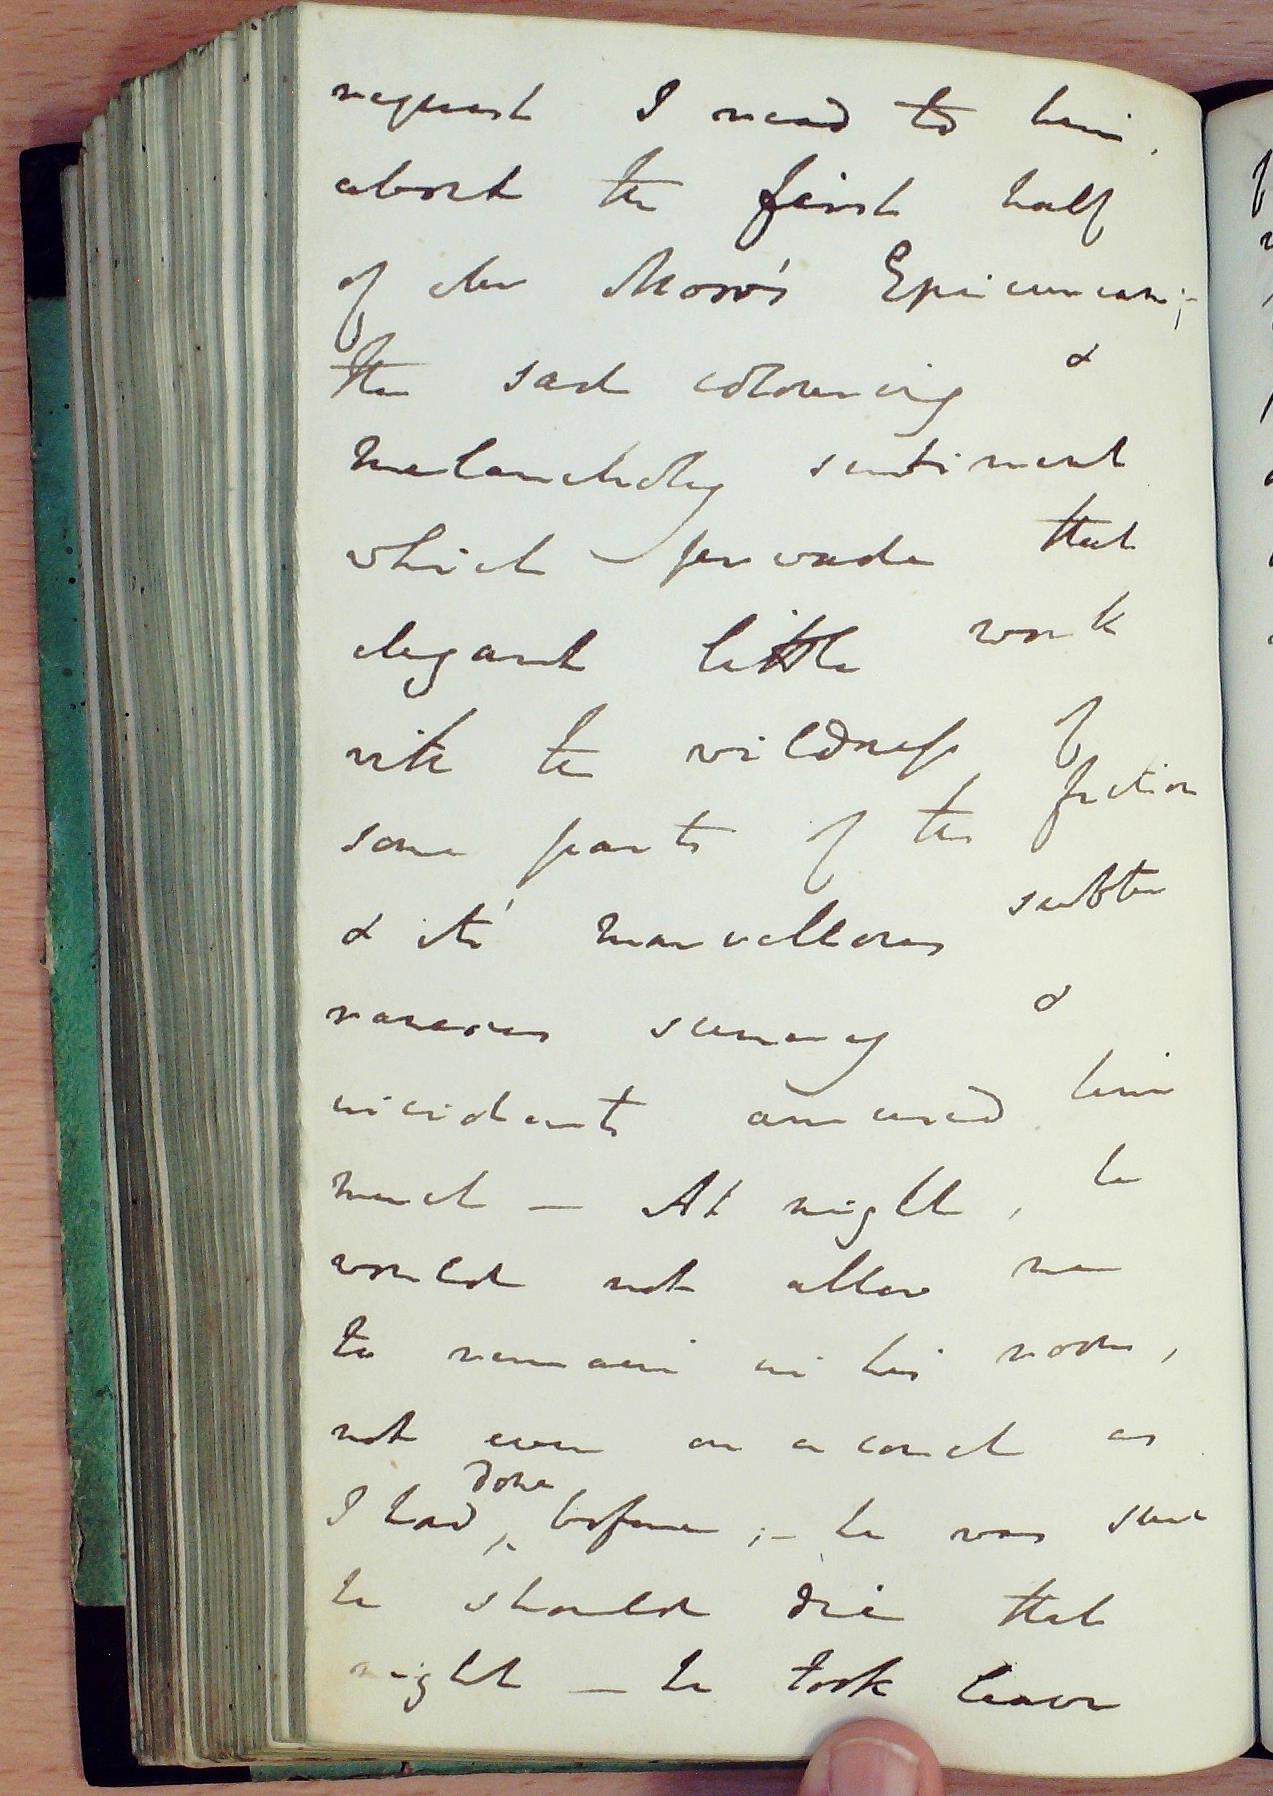 request I read to him,
about the first half
of Mr Moore's Epicurean;-
the sad colouring &
melancholy sentiment
which pervade that
elegant little work
with the wildness of
some parts of the fiction
& its' marvellous subter
raneous scenery &
incidents amused him
much — At night, he
would not allow me
to remain in his room,
not even on a couch as
I had done before;- he was sure
he should die that
night — he took leave